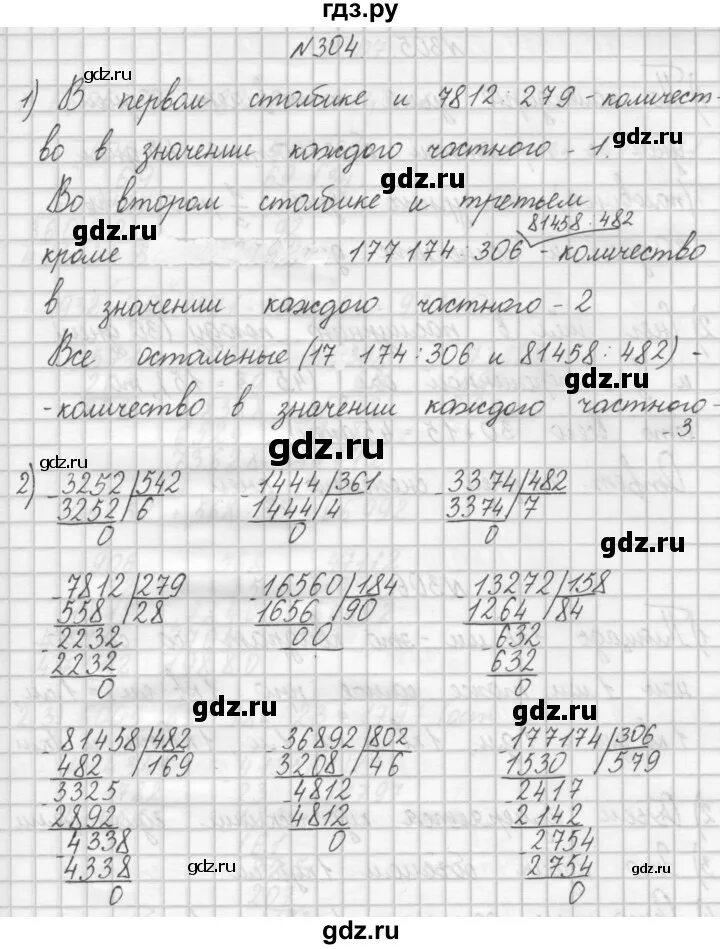 гдз.ру
№304
gdz.ru
1) В первом столбике и 7812:279 - количест-
во в значении каждого частного - 1.
gdz.ru
Во втором столбике и третьем
gdz.ru
81458:482
кроме 177174:306 - количество
в значении каждого частного - 2
Все остальные (17 174:306 и 81458:482) -
gdz.ru
- количество в значении каждого частного -
- 3
gdz.ru
gdz.ru
2) - 3252 | 542 - 1444 | 361 - 3374 | 482
3252 | 6 1444 | 4 3374 | 7
0 0 0
gdz.ru
- 7812 | 279 - 16560 | 184 - 13272 | 158
558 | 28 1656 | 90 1264 | 84
- 2232 00 - 632
2232 632
0 0
gdz.ru
gdz.ru
- 81458 | 482 - 36892 | 802 - 177174 | 306
482 | 169 3208 | 46 1530 | 579
- 3325 - 4812 - 2417
2892 4812 2142
- 4338 0 - 2754
4338 2754
0 0
gdz.ru
gdz.ru
gdz.ru